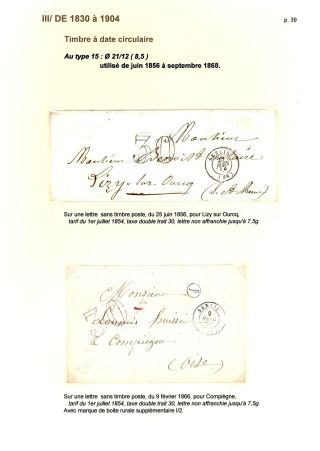 III/ DE 1830 à 1904
p. 39
Timbre à date circulaire
Au type 15 : Ø 21/12 ( 8,5 )
utilisé de juin 1856 à septembre 1868.
30
Monsieur
Monsieur Benoist
Lizy-sur-Ourcq
(S. et Marne)
Sur une lettre sans timbre poste, du 25 juin 1856, pour Lizy sur Ourcq,
tarif du 1er juillet 1854, taxe double trait 30, lettre non affranchie jusqu'à 7,5g.
Monsieur
30
à Compiègne
(Oise)
Sur une lettre sans timbre poste, du 9 février 1866, pour Compiègne,
tarif du 1er juillet 1854, taxe double trait 30, lettre non affranchie jusqu'à 7,5g.
Avec marque de boite rurale supplémentaire I/2.